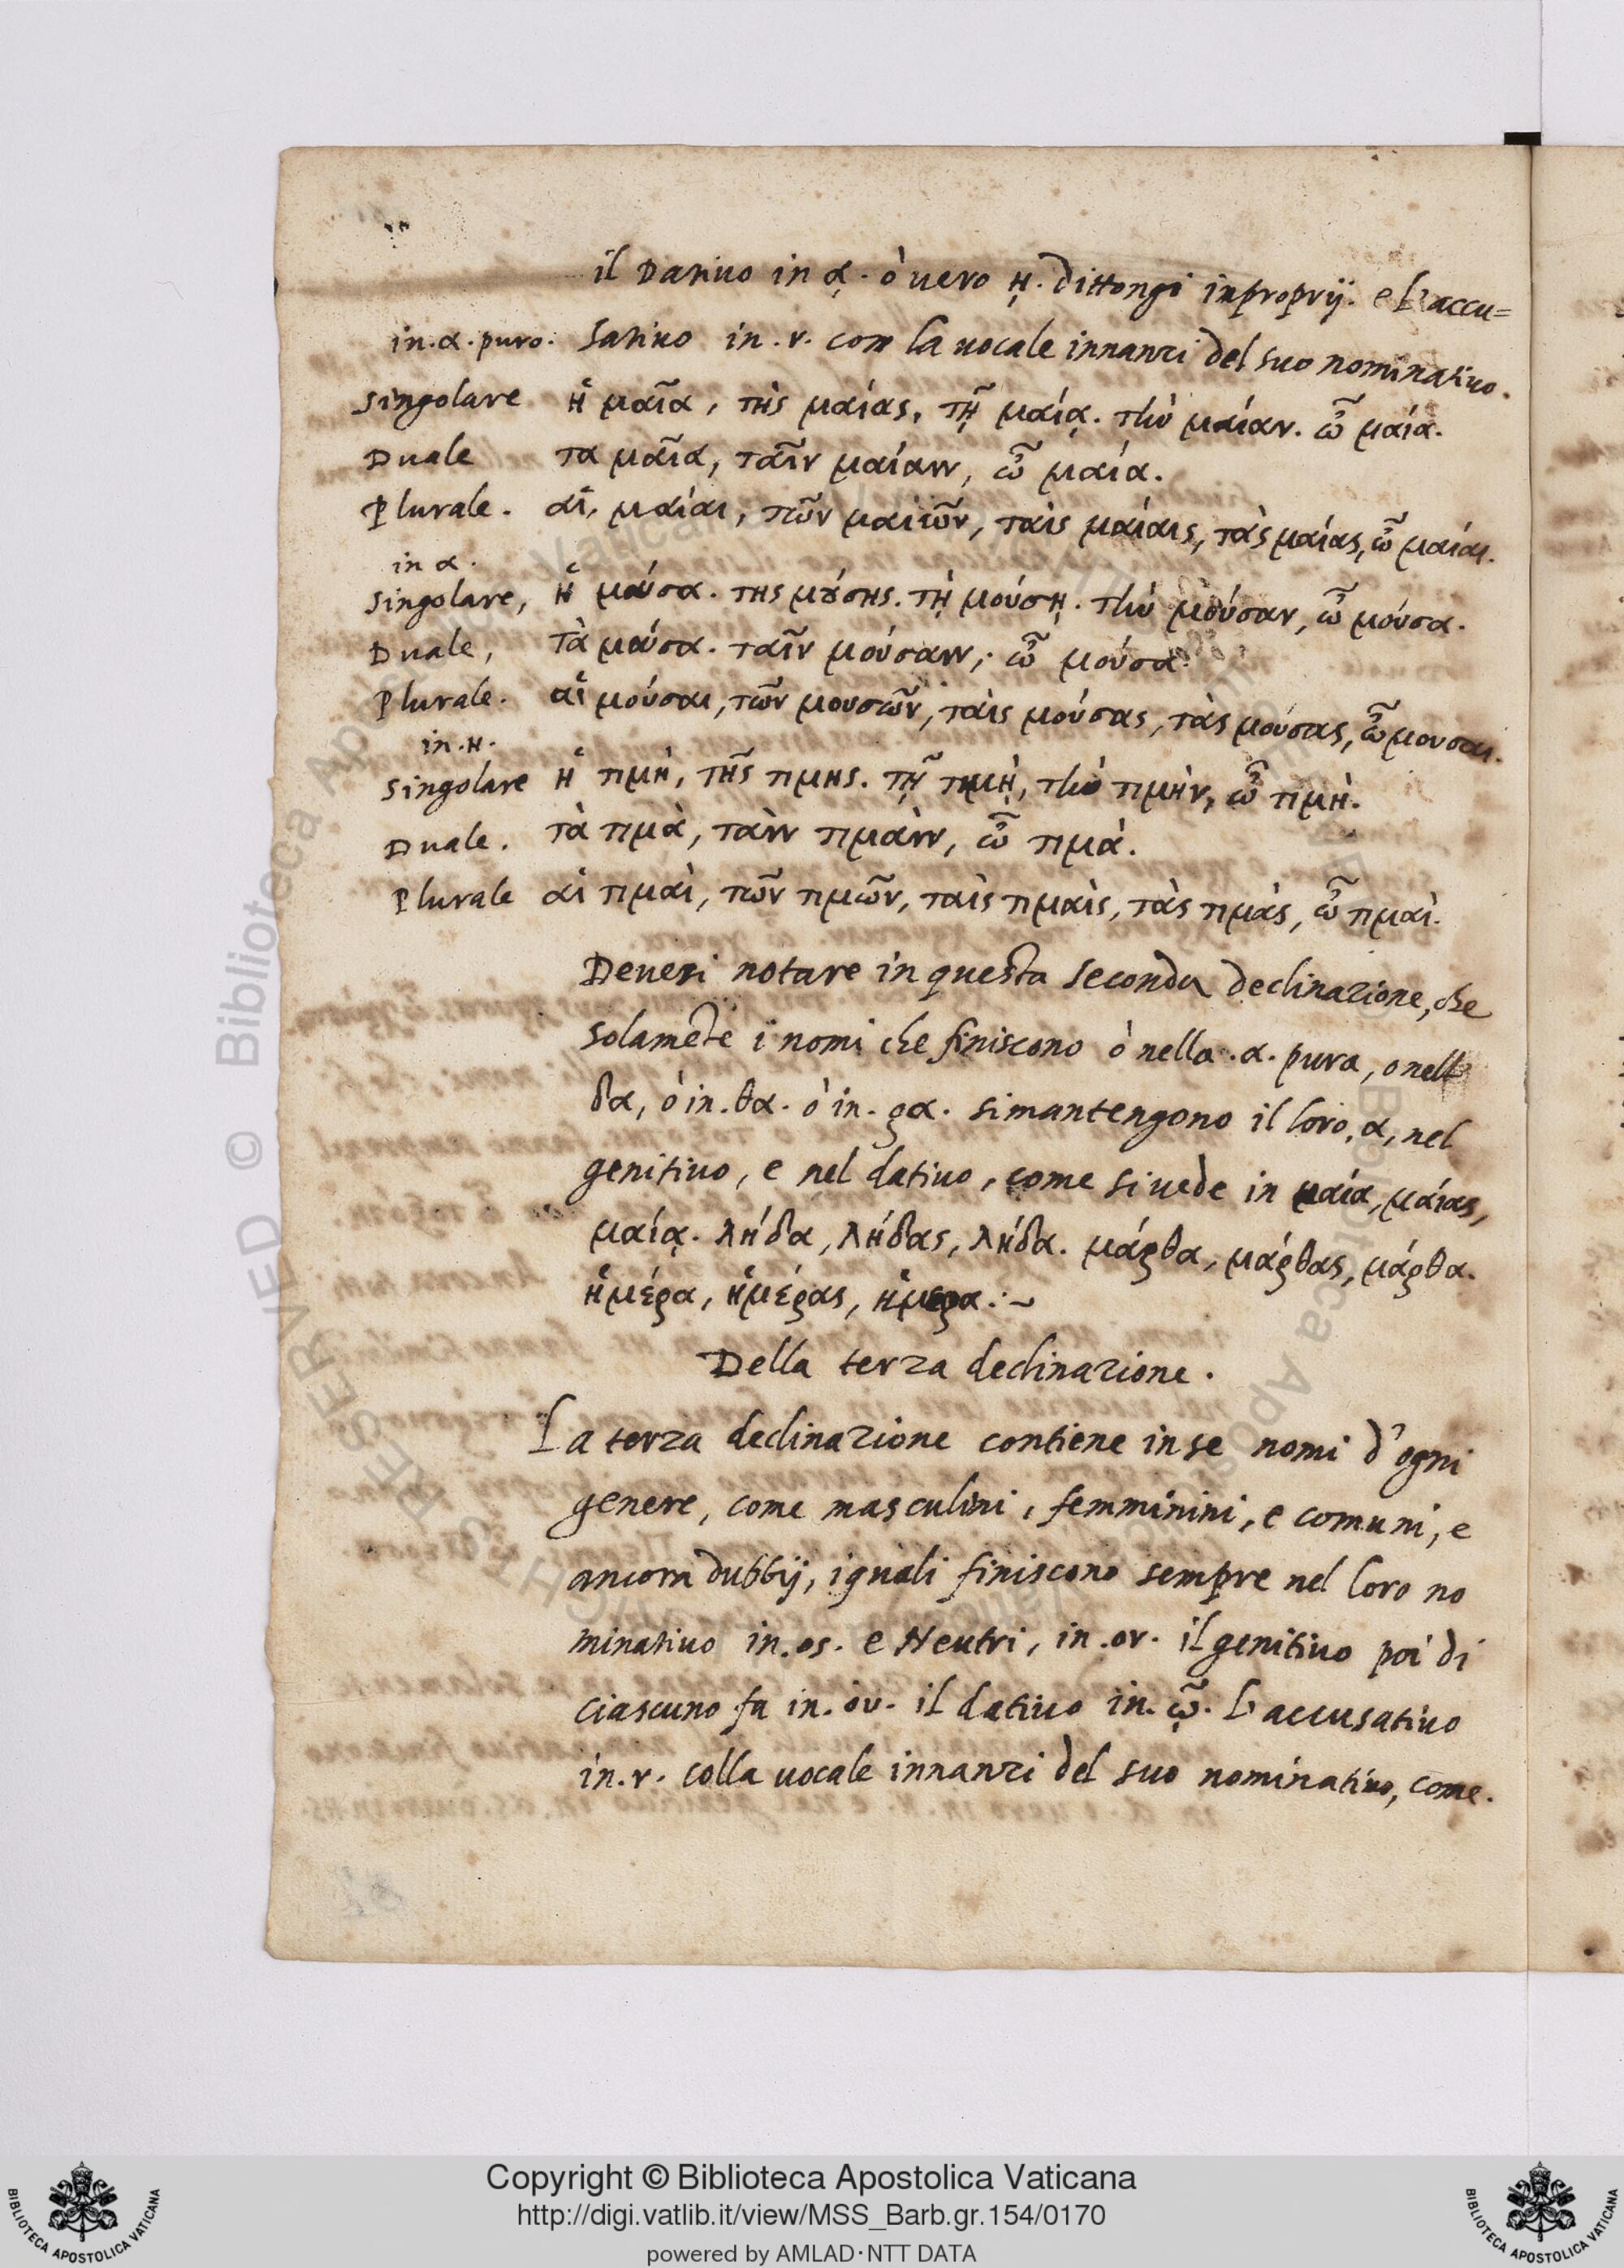 il Datiuo in ᾳ. ò uero ῃ. dittongi improprij. e l'accu=
in.α.puro. satiuo in.ν. con la uocale innanzi del suo nominatiuo.
Singolare ἡ μαῖα, τῆς μαίας, τῇ μαίᾳ. τὴν μαίαν. ὦ μαία.
Duale τα μαῖα, ταῖν μαίαιν, ὦ μαία.
Plurale. αἱ, μαίαι, τῶν μαιῶν, τὰις μαίαις, τὰς μαίας, ὦ μαίαι.
in α.
Singolare, ἡ μοῦσα. της μȣ́σης. τῇ μούσῃ. τὴν μούσαν, ὦ μούσα.
Duale, τὰ μούσα. ταῖν μούσαιν; ὦ μούσα.
Plurale. αἱ μούσαι, τῶν μουσῶν, τὰις μούσας, τὰς μούσας, ὦ μουσαι.
in.η.
Singolare ἡ τιμή, τῆς τιμης. τῇ τιμῇ, τὴν τιμὴν, ὦ τιμὴ.
Duale. τὰ τιμὰ, τὰιν τιμὰιν, ὦ τιμά.
Plurale αἱ τιμαὶ, τῶν τιμῶν, ταὶς τιμαὶς, τὰς τιμάς, ὦ τιμαὶ.
Deuesi notare in questa seconda declinazione, che
solamēte i nomi che finiscono ò nella .α. pura, o nell
δα, ò in.θα. ò in.ρα. simantengono il loro,α, nel
genitiuo, e nel datiuo, come si uede in μαία, μαίας,
μαίᾳ. λήδα, λήδας, λήδα. μάρθα, μάρθας, μάρθα.
ἡμέρα, ἡμέρας, ἡμερα:~
Della terza declinazione.
La terza declinazione contiene in se nomi d'ogni
genere, come masculini, femminini, e comuni, e
ancora dubbij, iquali finiscono sempre nel loro no
minatiuo in.ος. e Neutri, in.ον. il genitiuo poi di
ciascuno fa in.ου. il datiuo in.ῳ. l'accusatiuo
in.ν. colla uocale innanzi del suo nominatiuo, come.
© Biblioteca Apostolica Vaticana
RIGHTS RESERVED
BIBLIOTECA APOSTOLICA VATICANA
Copyright © Biblioteca Apostolica Vaticana
http://digi.vatlib.it/view/MSS_Barb.gr.154/0170
powered by AMLAD·NTT DATA
BIBLIOTECA APOSTOLICA VATICANA